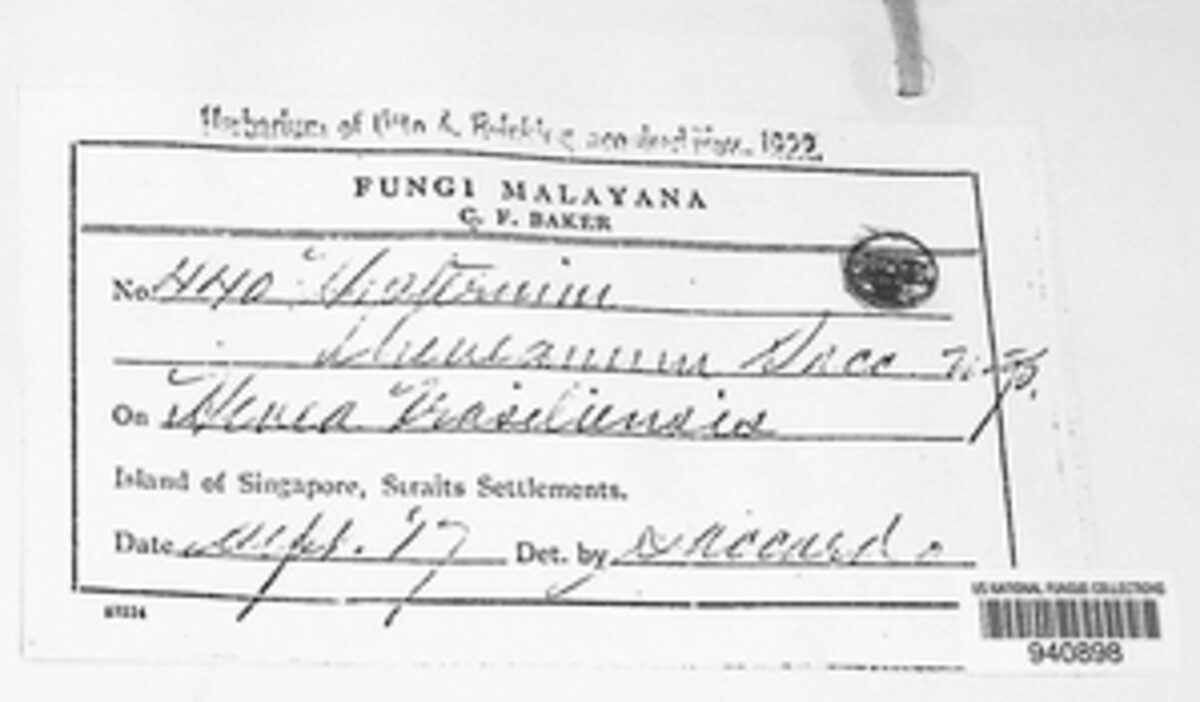 Herbarium of Otto A. Reinking acquired Nov. 1922.
FUNGI MALAYANA
C. F. BAKER
No. 440
Sacc. n. sp.
On Hevea Brasiliensis
Island of Singapore, Straits Settlements.
Date Sept. '17 Det. by Saccardo
US NATIONAL FUNGUS COLLECTIONS
940898